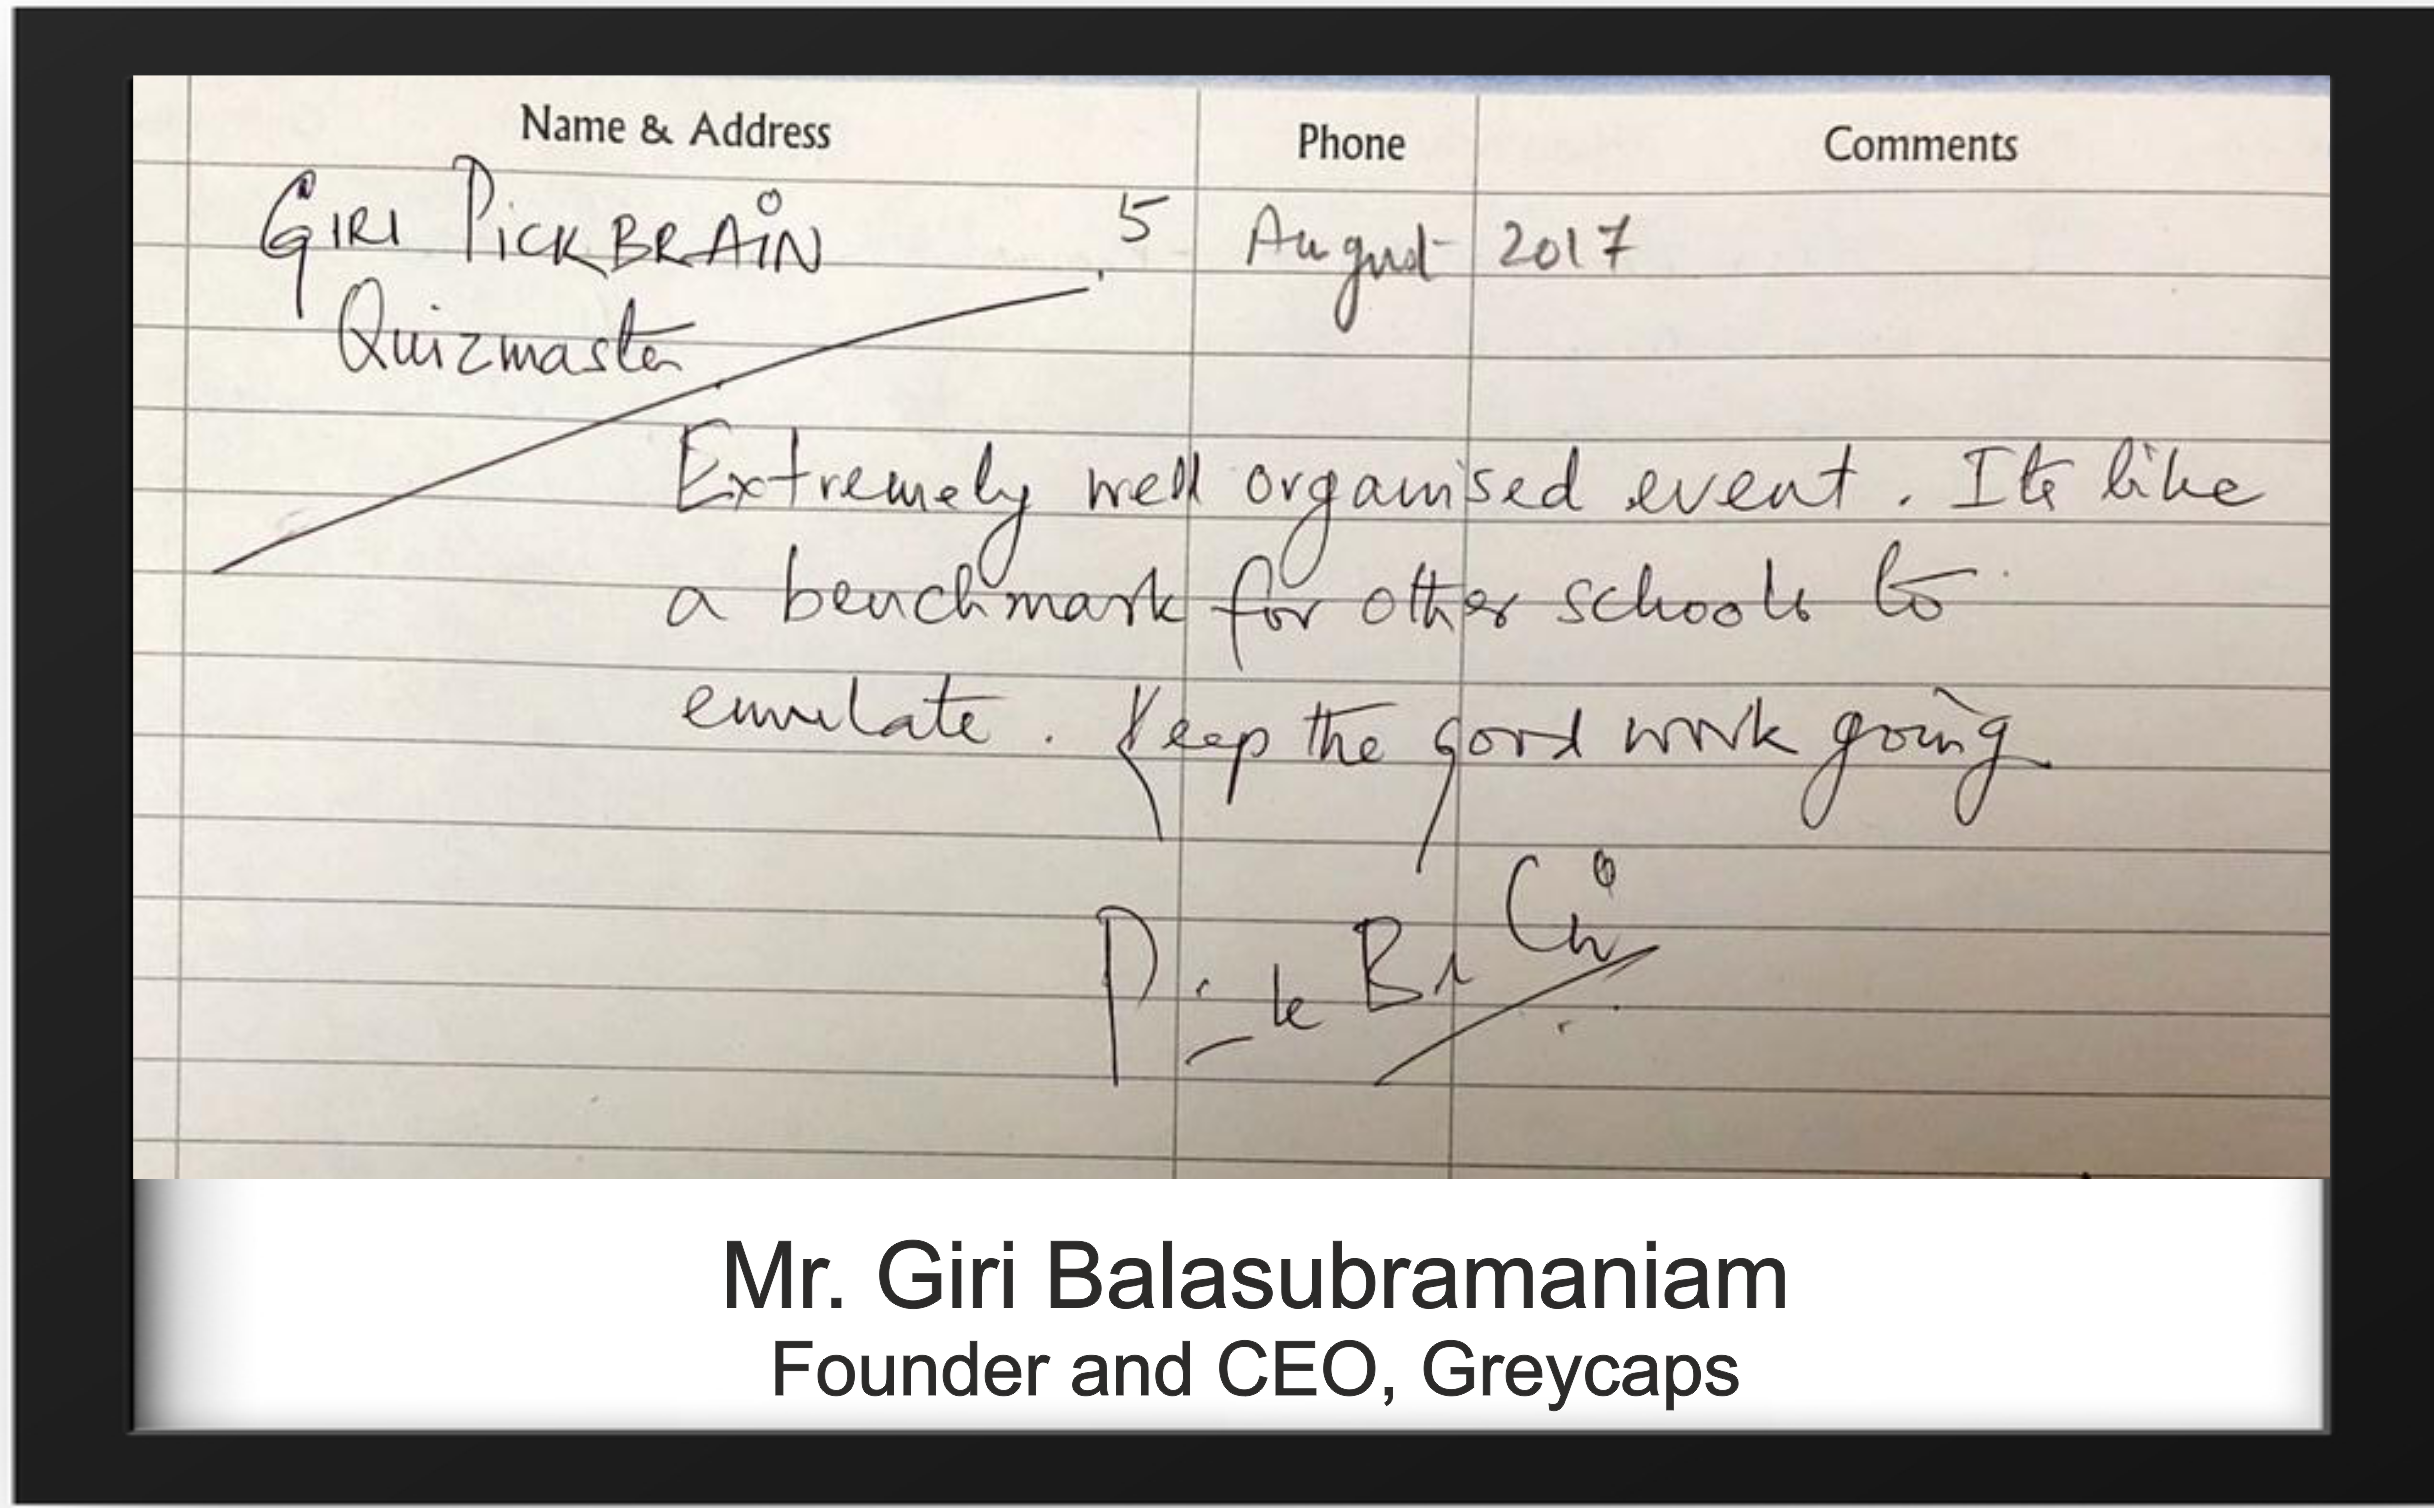 Name & Address Phone Comments
GIRI PICKBRAIN 5 August 2017
Quizmaster
Extremely well organised event. Its like
a benchmark for other schools to
emulate. Keep the good work going
Mr. Giri Balasubramaniam
Founder and CEO, Greycaps